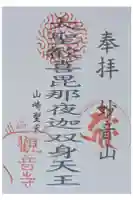 奉拝
妙音山
大聖歓喜毘那夜迦双身天王
山崎聖天
観音寺